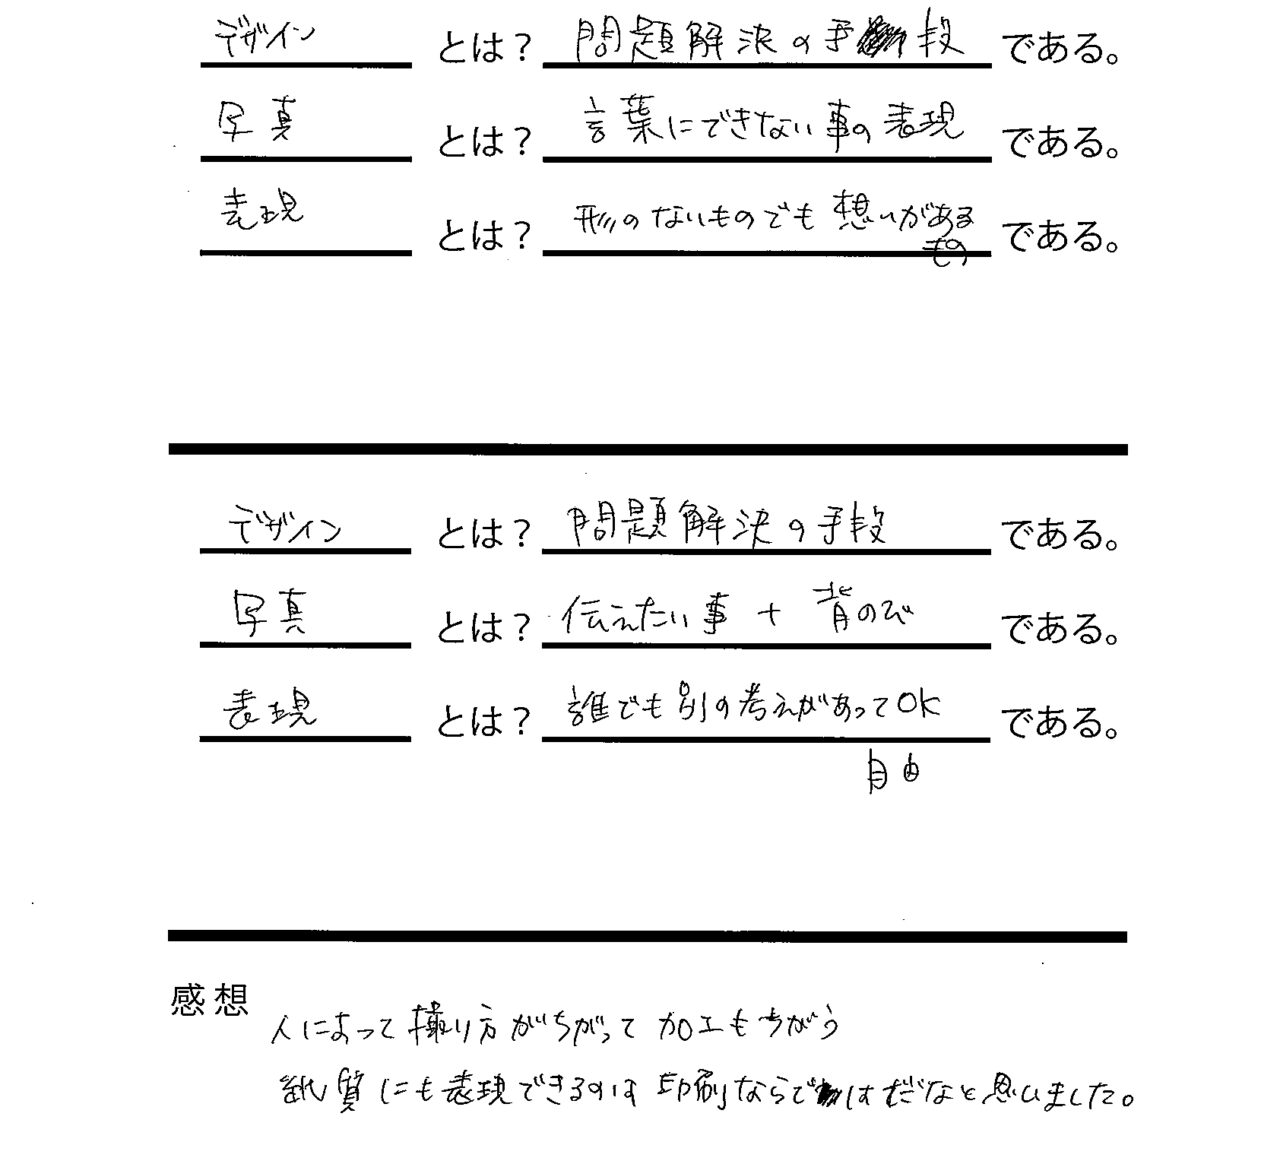 デザイン とは? 問題解決の手段 である。
写真 とは? 言葉にできない事の表現 である。
表現 とは? 形のないものでも想いがある
もの である。
デザイン とは? 問題解決の手段 である。
写真 とは? 伝えたい事 + 背のび である。
表現 とは? 誰でも別の考えがあってOK である。
自由
感想
人によって撮り方がちがって加工もちがう
紙質にも表現できるのは印刷ならではだなと思いました。